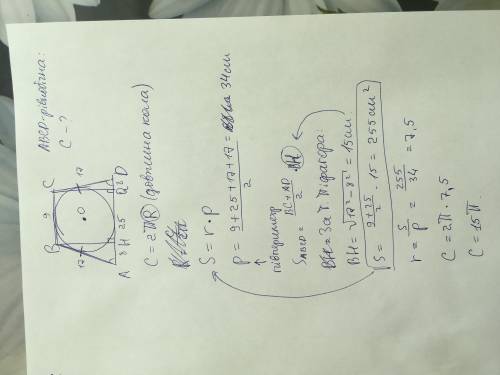 ABCD-рівнобічна:
C - ?
B 9 C
17 17
O
A 8 H 25 Q 8 D
C = 2πR (довжина кола)
S = r · p
P = 9+25+17+17 / 2 = 34 см
↑
півпериметр
S ABCD = BC+AD / 2 · BH
BH = За т. Піфагора:
BH = √17²-8² = 15 см
S = 9+25 / 2 · 15 = 255 см²
r = S / P = 255 / 34 = 7,5
C = 2π · 7,5
C = 15π